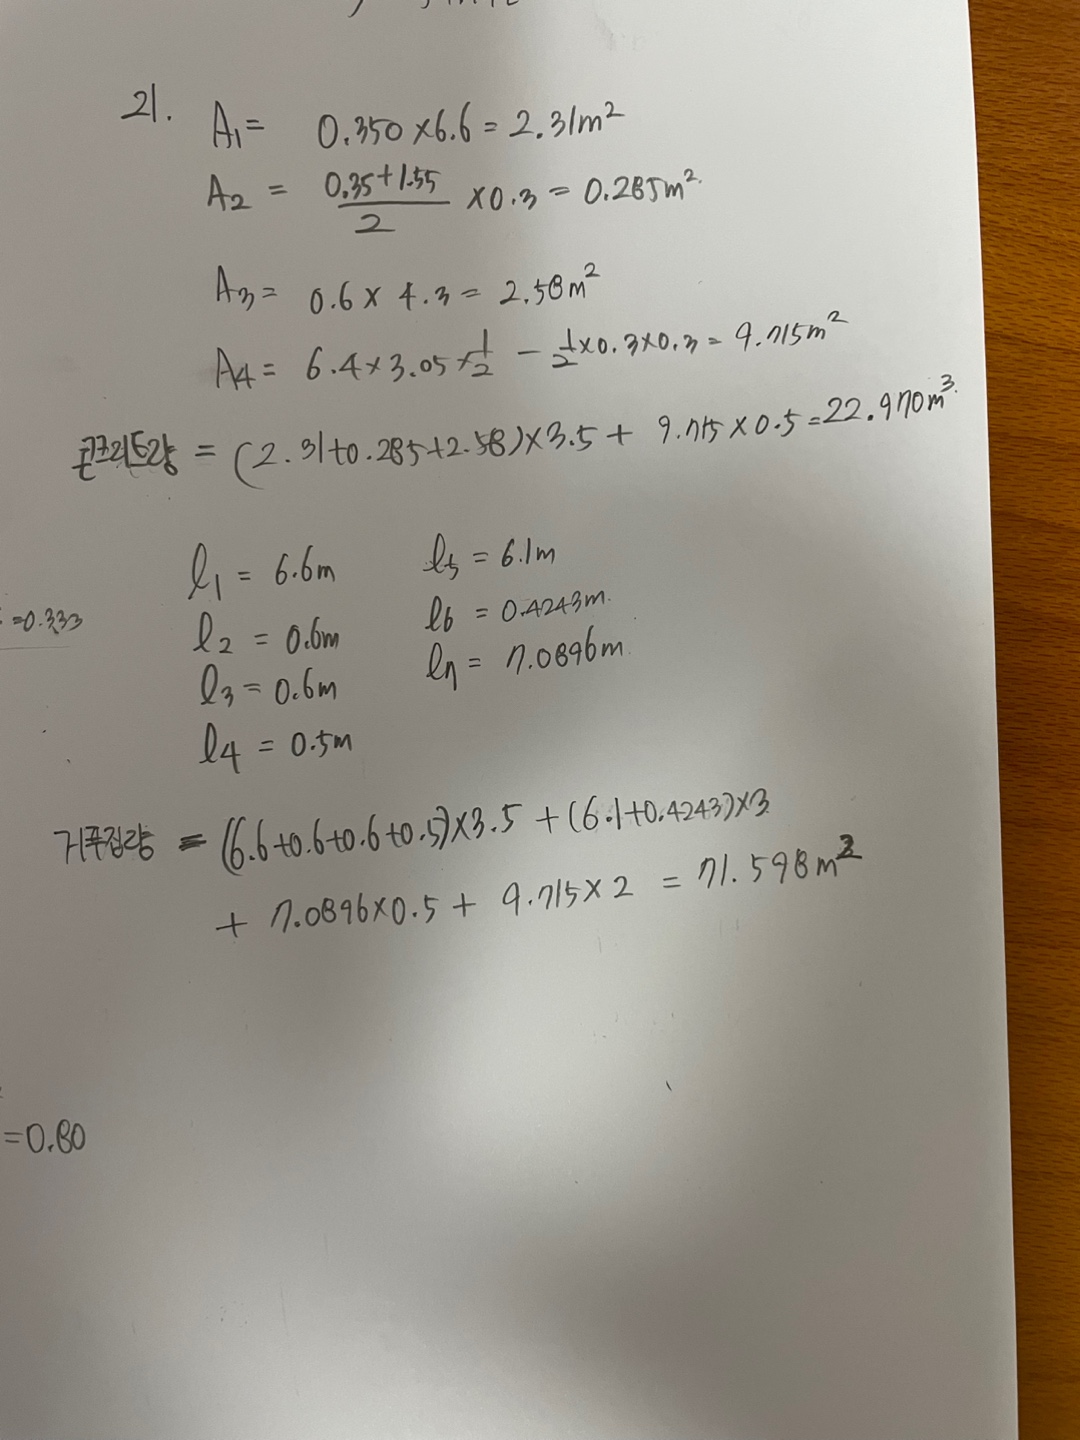 21. A₁ = 0.350 × 6.6 = 2.31m²
A₂ = (0.35+1.55)/2 × 0.3 = 0.285m².
A₃ = 0.6 × 4.3 = 2.58m²
A₄ = 6.4 × 3.05 × 1/2 - 1/2 × 0.3 × 0.3 = 9.715m²
콘크리트량 = (2.31+0.285+2.58)×3.5 + 9.715 × 0.5 = 22.970m³.
l₁ = 6.6m l₅ = 6.1m
=0.333
l₂ = 0.6m l₆ = 0.4243m.
l₃ = 0.6m l₇ = 7.0896m.
l₄ = 0.5m
거푸집량 = (6.6+0.6+0.6+0.5)×3.5 + (6.1+0.4243)×3
+ 7.0896×0.5 + 9.715×2 = 71.598m²
=0.80